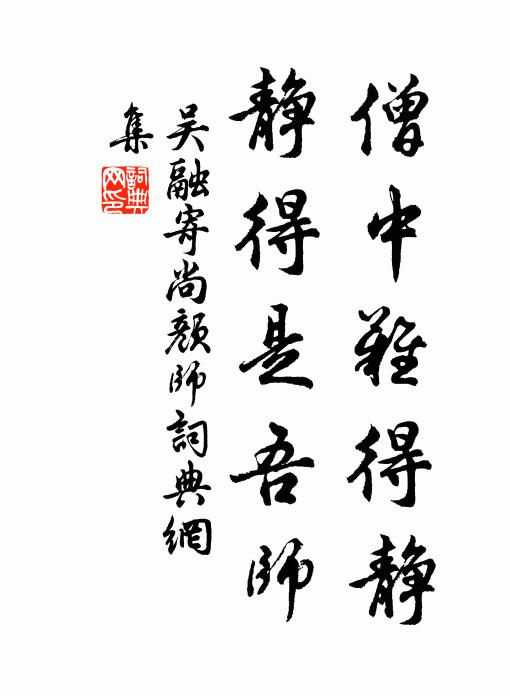 僧中難得靜
靜得是吾師
吳融寄尚顏師詞典網
集
詞典网印